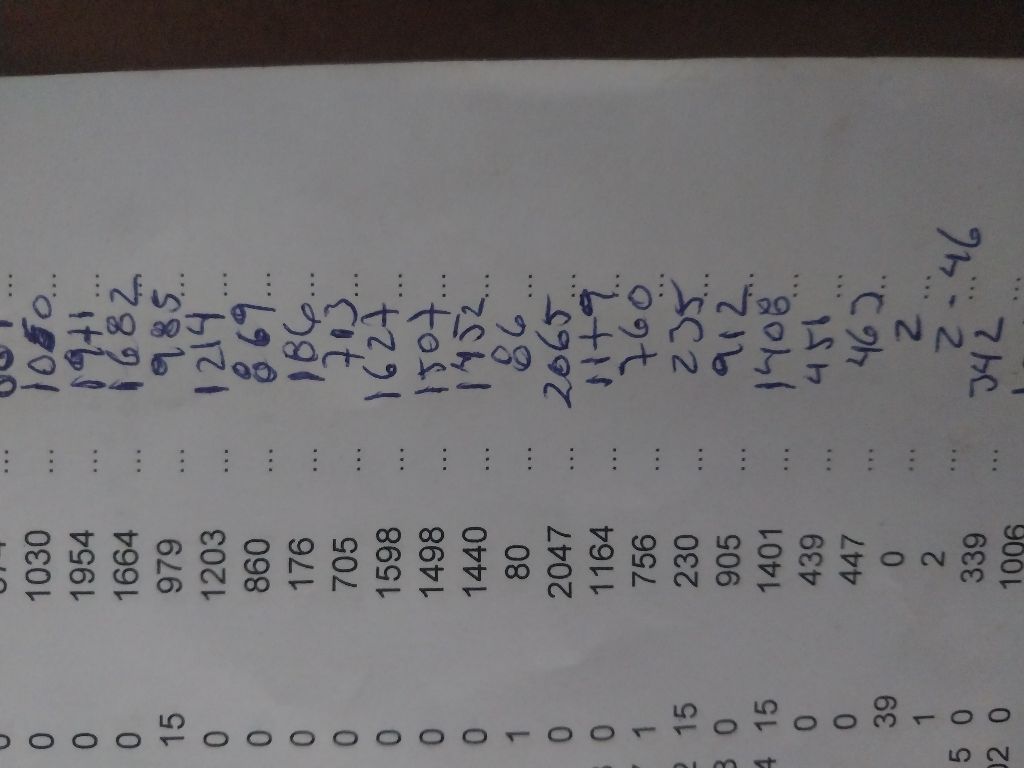 0 1030 ... 1050 ...
0 1954 ... 1971 ...
0 1664 ... 1682 ...
15 979 ... 985 ...
0 1203 ... 1214 ...
0 860 ... 869 ...
0 176 ... 186 ...
0 705 ... 713 ...
0 1598 ... 1627 ...
0 1498 ... 1507 ...
0 1440 ... 1452 ...
1 80 ... 86 ...
0 2047 ... 2065 ...
0 1164 ... 1179 ...
1 756 ... 760 ...
15 230 ... 235 ...
0 905 ... 912 ...
15 1401 ... 1408 ...
0 439 ... 451 ...
0 447 ... 463 ...
39 0 ... 2 ...
1 2 ... 2-46 ...
0 339 ... 342
0 1006 ...